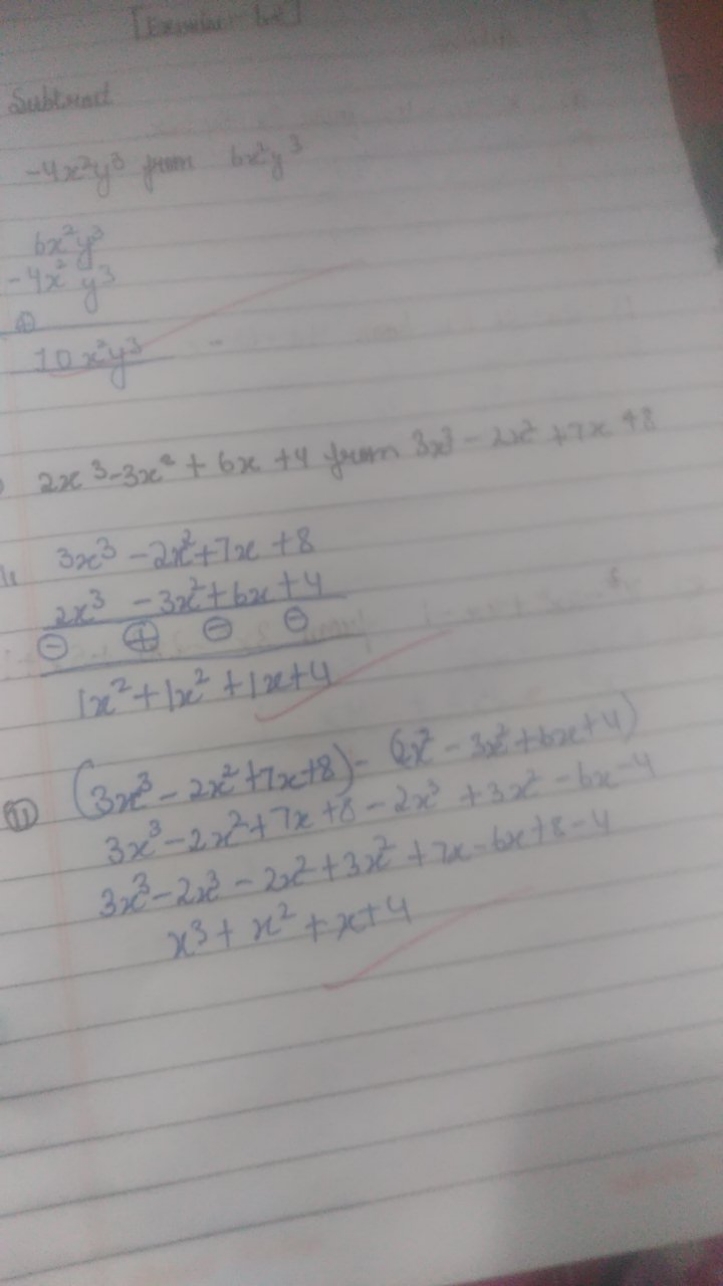 Subtract
-4x²y³ from 6x²y³
6x²y³
-4x²y³
⊕
10x²y³
2x³-3x²+6x+4 from 3x³-2x²+7x+8
3x³-2x²+7x+8
2x³-3x²+6x+4
⊖ ⊕ ⊖ ⊖
1x²+1x²+1x+4
(11) (3x³-2x²+7x+8)-(2x²-3x²+6x+4)
3x³-2x²+7x+8-2x³+3x²-6x-4
3x³-2x³-2x²+3x²+7x-6x+8-4
x³+x²+x+4